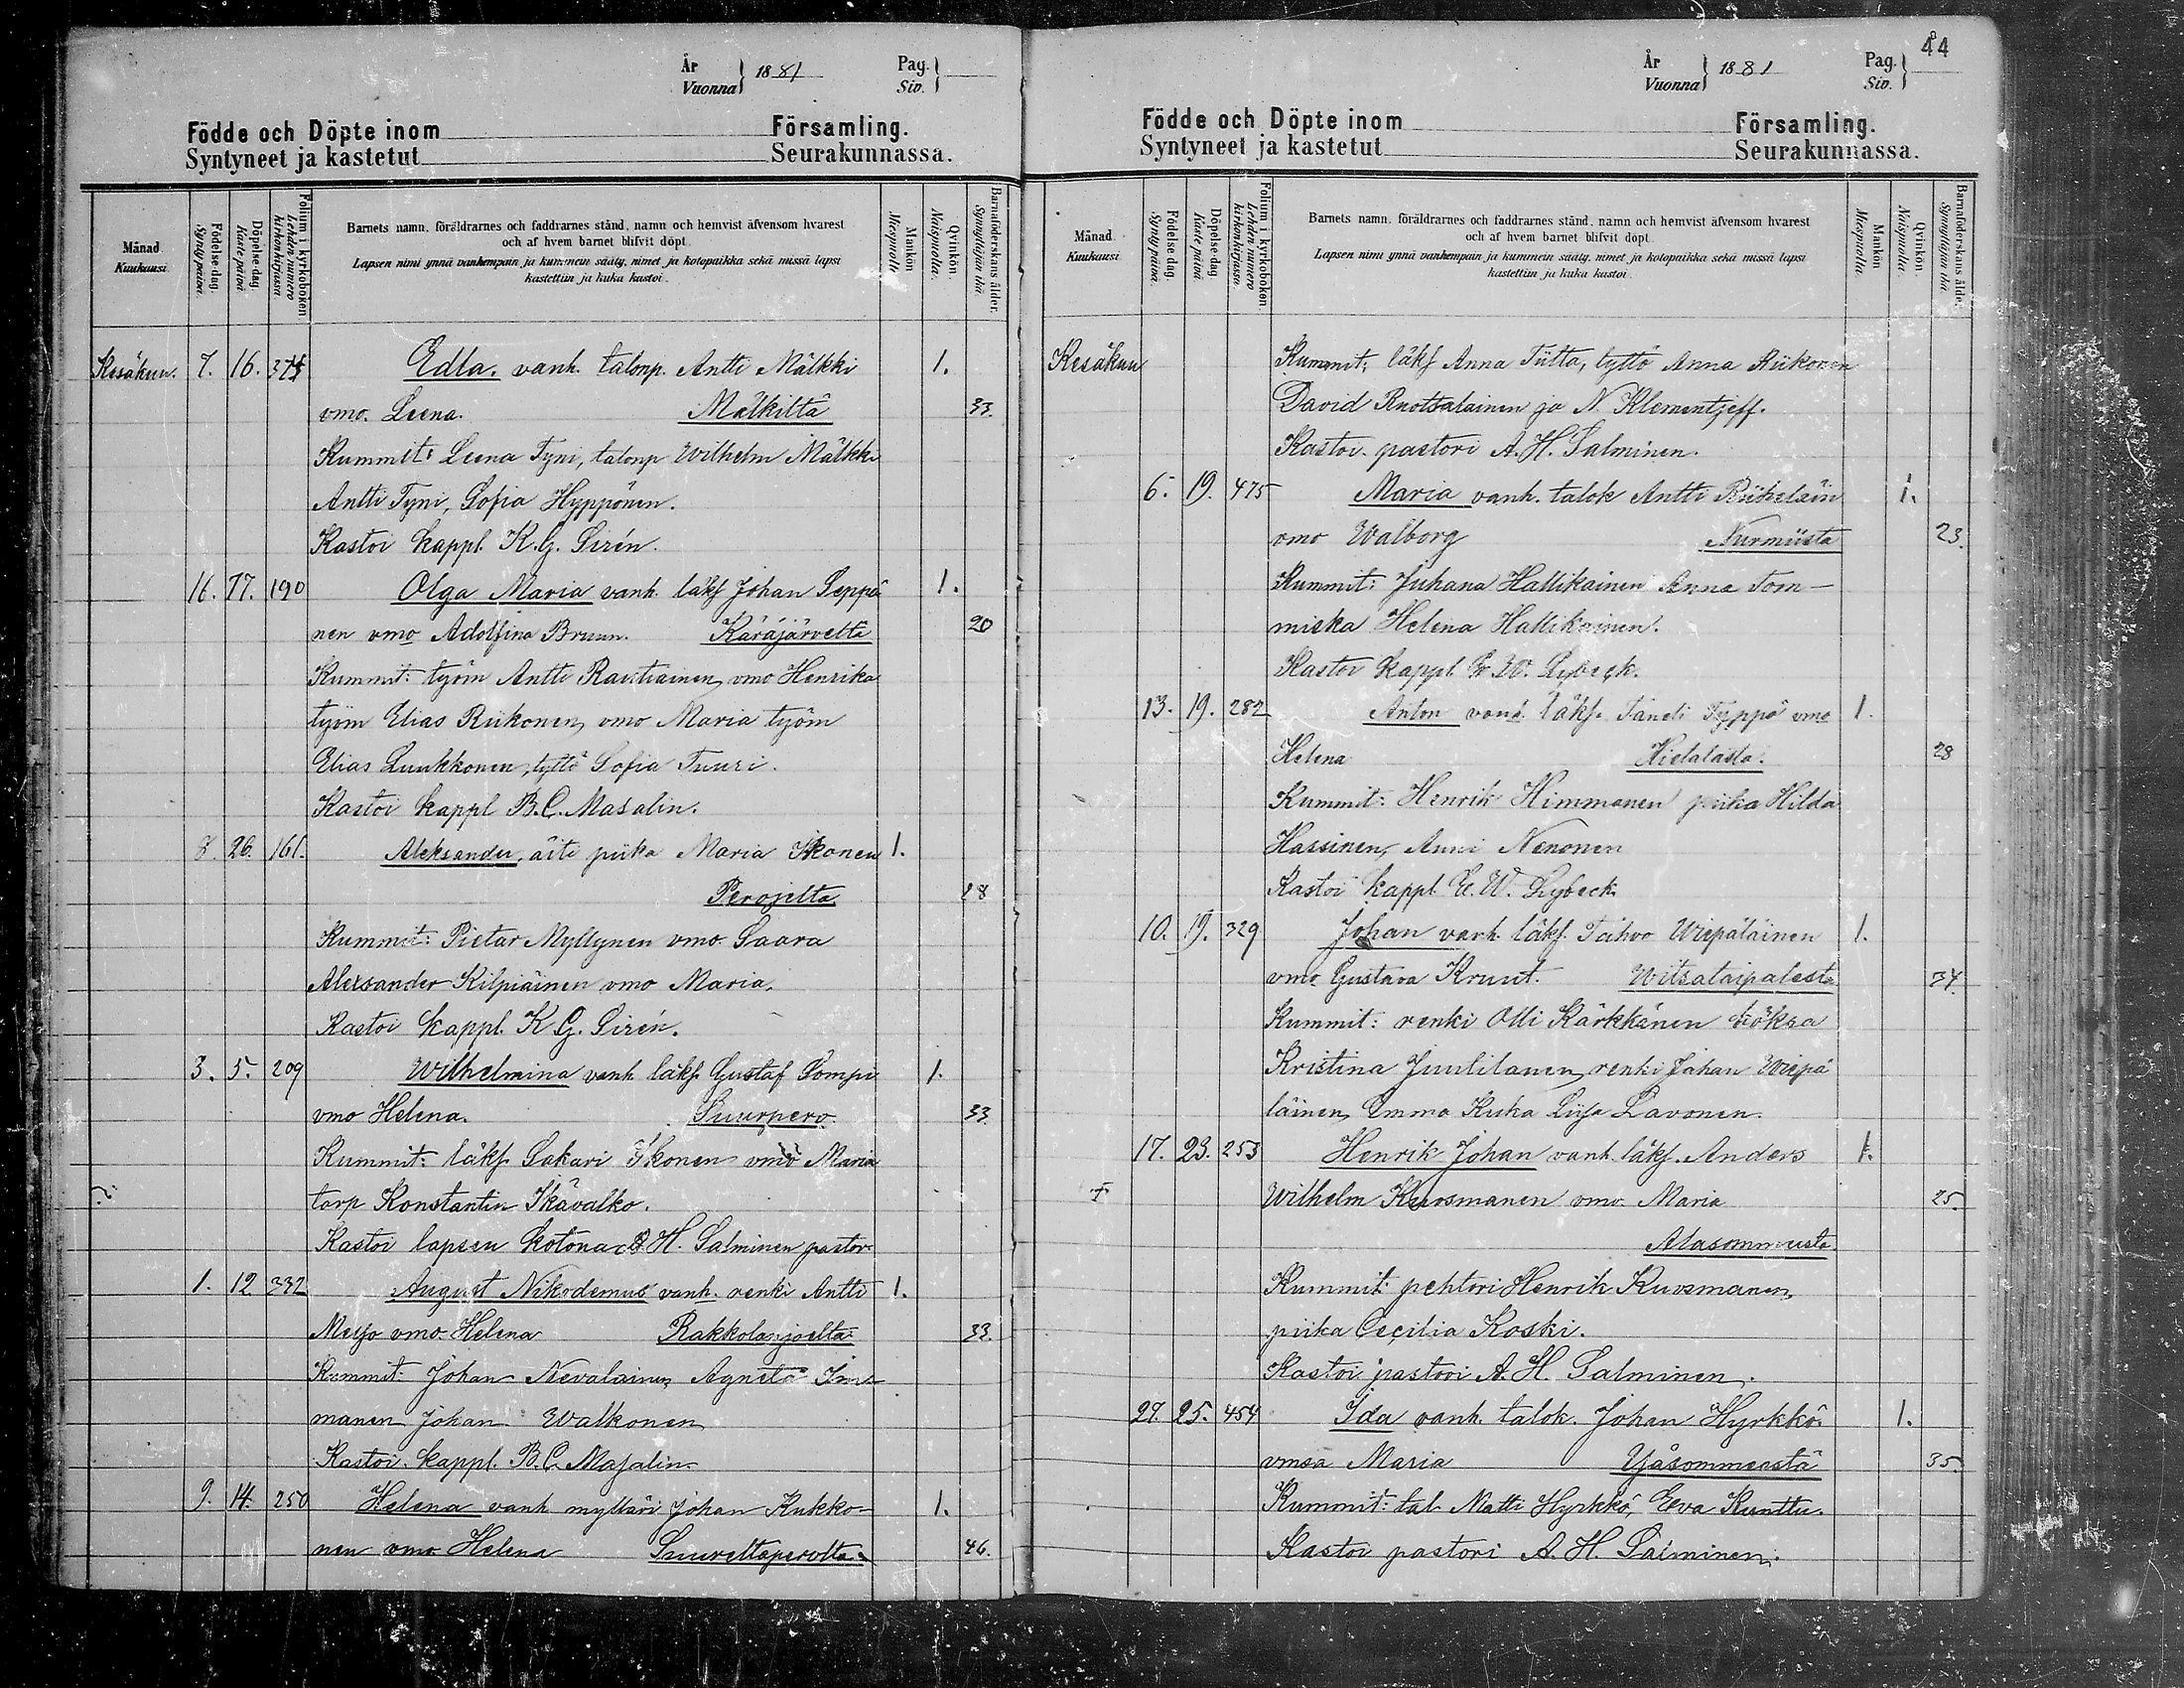 År
Vuonna } 1881 Pag.
Siv. }
Födde och Döpte inom Församling.
Syntyneet ja kastetut Seurakunnassa.
Månad.
Kuukausi.
Födelse-dag.
Synty päivä.
Döpelse-dag.
Kaste päivä.
Folium i kyrkoboken.
Lehden numero kirkonkirjassa.
Barnets namn, föräldrarnes och faddrarnes stånd, namn och hemvist äfvensom hvarest
och af hvem barnet blifvit döpt.
Lapsen nimi ynnä vanhempain ja kummein sääty, nimet ja kotopaikka sekä missä lapsi
kastettiin ja kuka kastoi.
Mankön
Miespuolta.
Qvinkön.
Naispuolta.
Barnaföderskans ålder.
Synnyttäjän ikä.
Kesäkuu. 7. 16. Edla. vanh. talonp. Antti Mälkki 1.
vmo. Leena. Mälkiltä 33.
Kummit: Leena Tyni, talonp Wilhelm Mälkki
Antti Tyni, Sofia Hyppönen.
Kastoi kappl. K. G. Sirén.
16. 17. 190 Olga Maria vanh. läks Johan Seppä 1.
nen vmo Adolfina Bruun. Käräjärveltä 20
Kummit: työm Antti Rautiainen, vmo Henrika
työm Elias Riikonen, vmo Maria työm
Elias Luukkonen, tyttö Sofia Tuuri.
Kastoi kappl B. C. Masalin.
8. 26. 161. Aleksander, äiti piika Maria Ikonen 1.
Perojelta 28
Kummit: Pietar Myllynen vmo. Saara
Alexsander Kilpiäinen vmo Maria.
Kastoi kappl. K G. Sirén.
3. 5. 209 Wilhelmina vanh läks. Gustaf Sompi 1.
vmo Helena. Suurpero. 33.
Kummit: läks. Sakari Ikonen vmo Maria
torp Konstantin Ikävalko.
Kastoi lapsen kotona A. H. Salminen pastor.
1. 12 332 August Nikodemus vanh. renki Antti 1.
vmo Helena Rakkolanjoelta 33.
Kummit: Johan Nevalainen, Agneta Im
manen Johan Walkonen
Kastoi kappl. B. C. Masalin.
9. 14. 250 Helena vanh mylläri Johan Kukko- 1.
nen vmo Helena Suureltaperolta 46.
44
År
Vuonna } 1881 Pag.
Siv. }
Födde och Döpte inom Församling.
Syntyneet ja kastetut Seurakunnassa.
Månad
Kuukausi.
Födelse-dag.
Synty päivä.
Döpelse-dag.
Kaste päivä.
Folium i kyrkoboken.
Lehden numero kirkonkirjassa.
Barnets namn, föräldrarnes och faddrarnes stånd, namn och hemvist äfvensom hvarest
och af hvem barnet blifvit döpt.
Lapsen nimi ynnä vanhempain ja kummein sääty, nimet ja kotopaikka sekä missä lapsi
kastettiin ja kuka kastoi.
Mankön
Miespuolta.
Qvinkön.
Naispuolta.
Barnaföderskans ålder.
Synnyttäjän ikä.
Kesäkuu Kummit; läks Anna Tiitta, tyttö Anna Riikonen
David Ruottalainen ja N. Klementjeff.
Kastoi pastori A. H. Salminen.
6. 19. 475 Maria vanh. talok Antti Piiheläin 1.
vmo Walborg Nurmiista 23.
Kummit: Juhana Hallikainen Anna Tom-
miska Helena Hallikainen.
Kastoi kappl. E. W. Lybeck.
13. 19. 282 Anton vanh. läks. Taneli Typpö vmo 1.
Helena Hietalasta. 28
Kummit: Henrik Himmanen piika Hilda
Hassinen, Anni Nenonen
Kastoi kappl. E. W. Lybeck.
10. 19. 329 Johan vanh. läks. Tahvo Wiepäläinen 1.
vmo. Gustava Kruut. Witsataipalesta 34.
Kummit: renki Olli Kärkkänen
Kristina Juulilanen, renki Johan Wiepä
läinen, Emma Kuha Liisa Lavonen.
17. 23. 253 Henrik Johan vanh. läks. Anders 1.
Wilhelm Kuosmanen vmo. Maria 25.
Alasommeesta
Kummit: pehtori Henrik Kuosmanen,
piika Cecilia Koski.
Kastoi pastori A. H. Salminen.
27. 25. 454 Ida vanh. talok. Johan Hyrkkö 1.
vmsa Maria Yläsommeesta 35.
Kummit: tal Matti Hyrkkö, Eeva Kunttu.
Kastoi pastori A. H. Salminen.